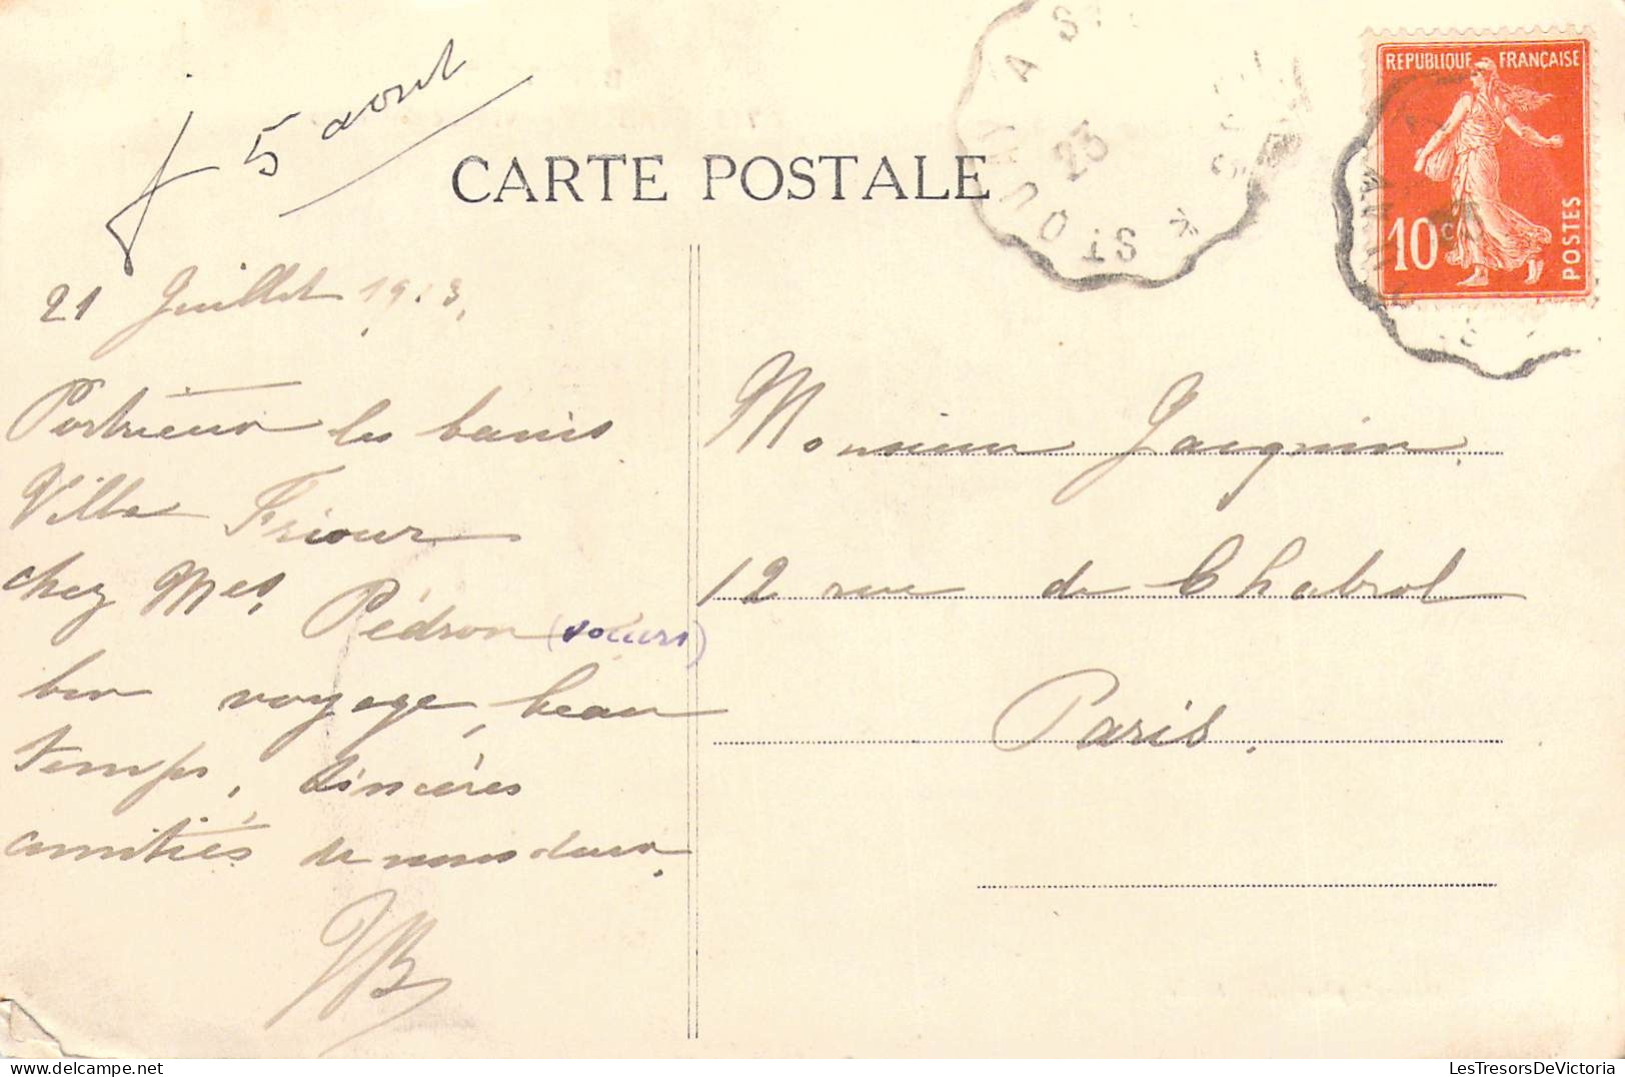 5 aout
CARTE POSTALE
ST QUAY A S
23
REPUBLIQUE FRANÇAISE
10c
POSTES
21 Juillet 1913,
Portrieux les bains
Villa Friour
chez Mes. Pédron (soeurs)
bon voyage, beau
temps, sincères
amitiés de nous deux.
JB
Monsieur Jacquin.
12 rue de Chabrol
Paris.
LesTresorsDeVictoria.com